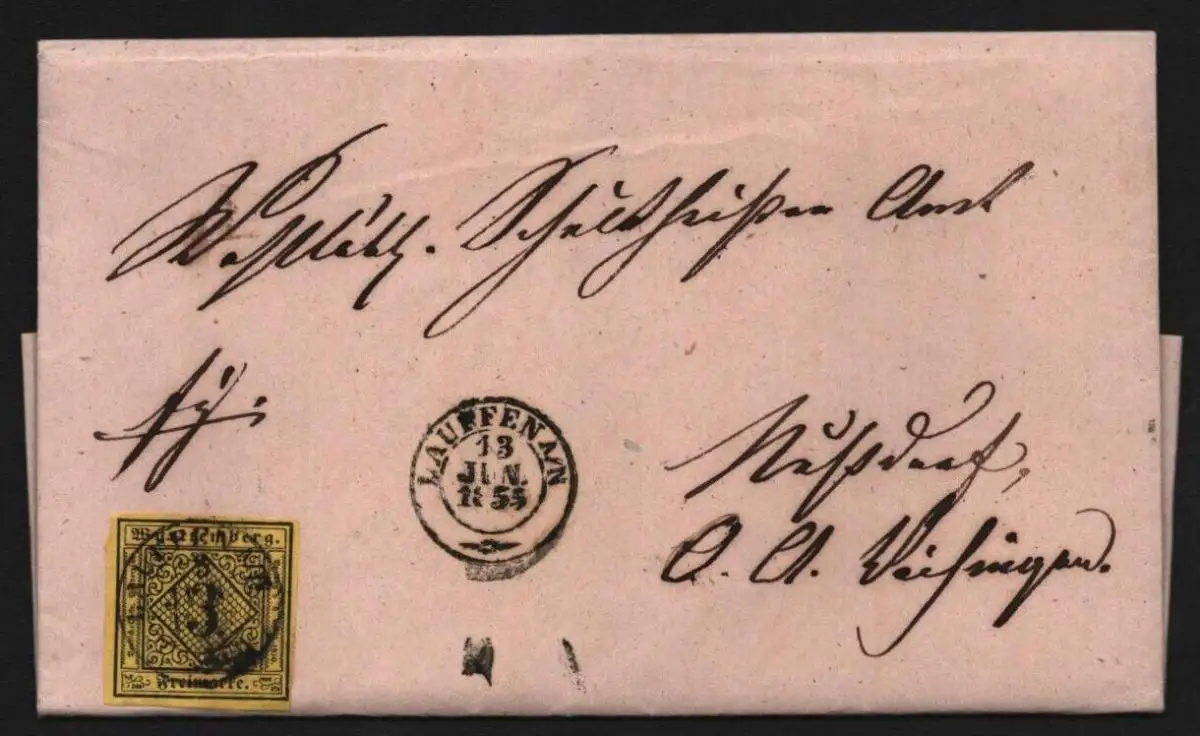 Wohllöbl. Schultheißen Amt
Nußdorf,
O. A. Vaihingen.
LAUFFEN A/N
13
JUN.
1855
Württemberg.
3
Freimarke.